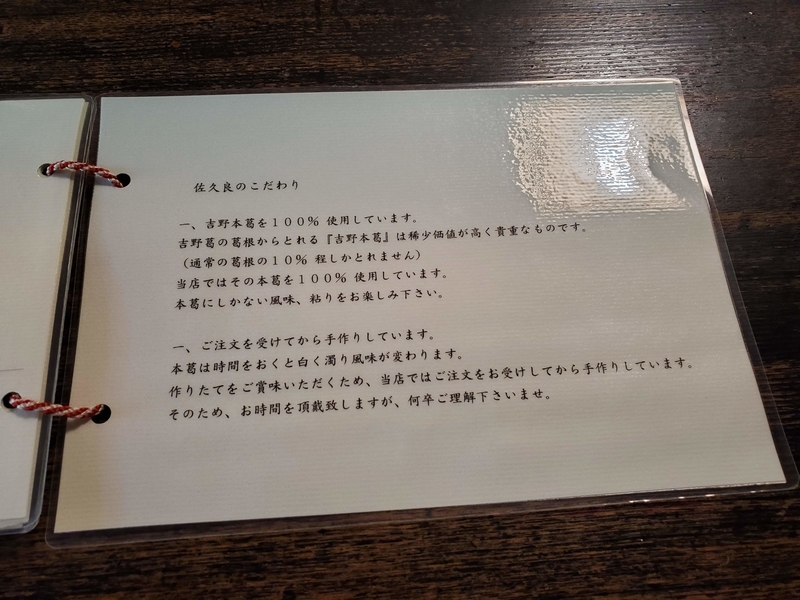 佐久良のこだわり
一、吉野本葛を１００％ 使用しています。
吉野葛の葛根からとれる『吉野本葛』は稀少価値が高く貴重なものです。
（通常の葛根の１０％ 程しかとれません）
当店ではその本葛を１００％ 使用しています。
本葛にしかない風味、粘りをお楽しみ下さい。
一、ご注文を受けてから手作りしています。
本葛は時間をおくと白く濁り風味が変わります。
作りたてをご賞味いただくため、当店ではご注文をお受けしてから手作りしています。
そのため、お時間を頂戴致しますが、何卒ご理解下さいませ。